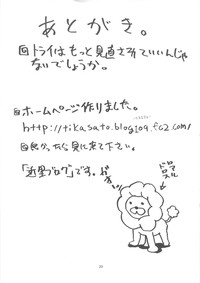 あとがき。
回トライはもっと見直されていいんじゃ
ないでしょうか。
回ホームページ作りました。
http://tikasato.blog109.fc2.com/
回良かったら見に来て下さい。
「近里ブログ」です。